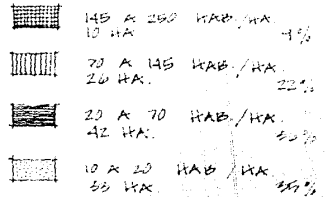 145 A 250 HAB/HA.
10 HA
70 A 145 HAB./HA.
26 HA. 22%
20 A 70 HAB./HA.
42 HA.
10 A 20 HAB/HA.
HA.